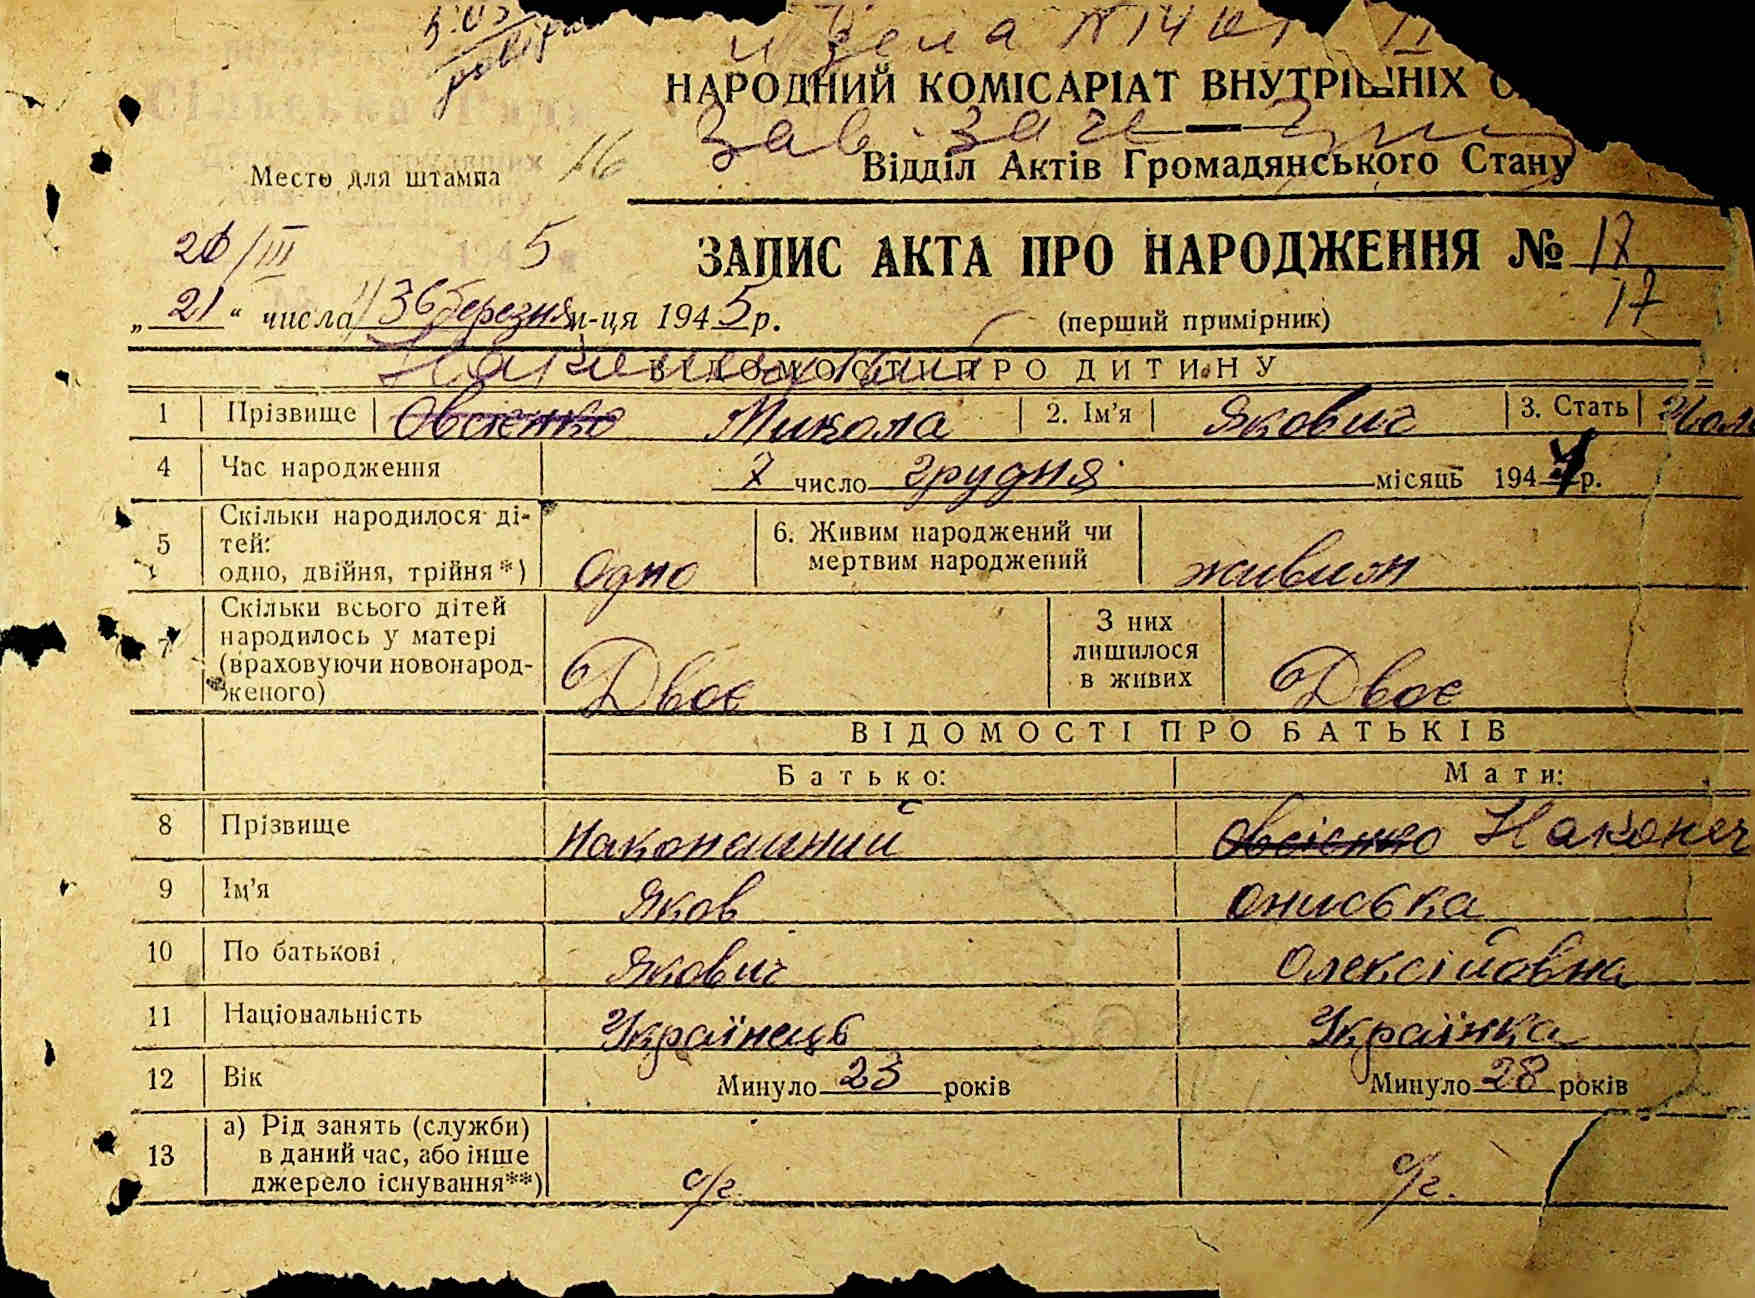 НАРОДНИЙ КОМІСАРІАТ ВНУТРІШНІХ С
Відділ Актів Громадянського Стану
Сільська Рада
Место для штампа
16
ЗАПИС АКТА ПРО НАРОДЖЕННЯ № 17
20/III 5
„21“ числа березня м-ця 1945 р. (перший примірник) 17
ВІДОМОСТІ ПРО ДИТИНУ
1 Прізвище Овсієнко Микола 2. Ім'я Якович 3. Стать
4 Час народження 7 число грудня місяць 1944 р.
5 Скільки народилося ді-
тей:
одно, двійня, трійня*) Одно 6. Живим народжений чи
мертвим народжений живим
7 Скільки всього дітей
народилось у матері
(враховуючи новонарод-
женого) Двоє З них
лишилося
в живих Двоє
ВІДОМОСТІ ПРО БАТЬКІВ
Батько: Мати:
8 Прізвище Наконешний Овсієнко Наконеч
9 Ім'я Яков Ониська
10 По батькові Якович Олексійовна
11 Національність Українець Українка
12 Вік Минуло 23 років Минуло 28 років
13 а) Рід занять (служби)
в даний час, або інше
джерело існування**) с/г. с/г.